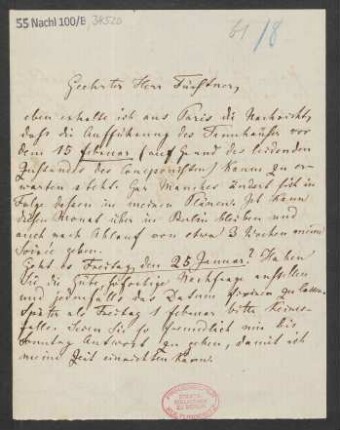 55 Nachl 100/B 38520
61/8
Geehrter Herr Fürstner,
eben erhalte ich aus Paris die Nachricht,
daß die Aufführung des Tannhäuser vor
dem 15 februar (auf Grund des leidenden
Zustandes des Componisten) kaum zu er-
warten steht. Gar Manches ändert sich in
Folge dessen in meinen Plänen. Ich kann
diesen Monat über in Berlin bleiben und
auch nach Ablauf von etwa 3 Wochen meine
Soirée geben.
Geht es Freitag, den 25 Januar? Haben
Sie die Güte sofortige Nachfrage anstellen
und jedenfalls das Datum fixiren zu lassen.
Später als Freitag 1 februar bitte keines-
falles. Seien Sie so freundlich mir bis
Sonntag Antwort zu geben, damit ich
meine Zeit einrichten kann.